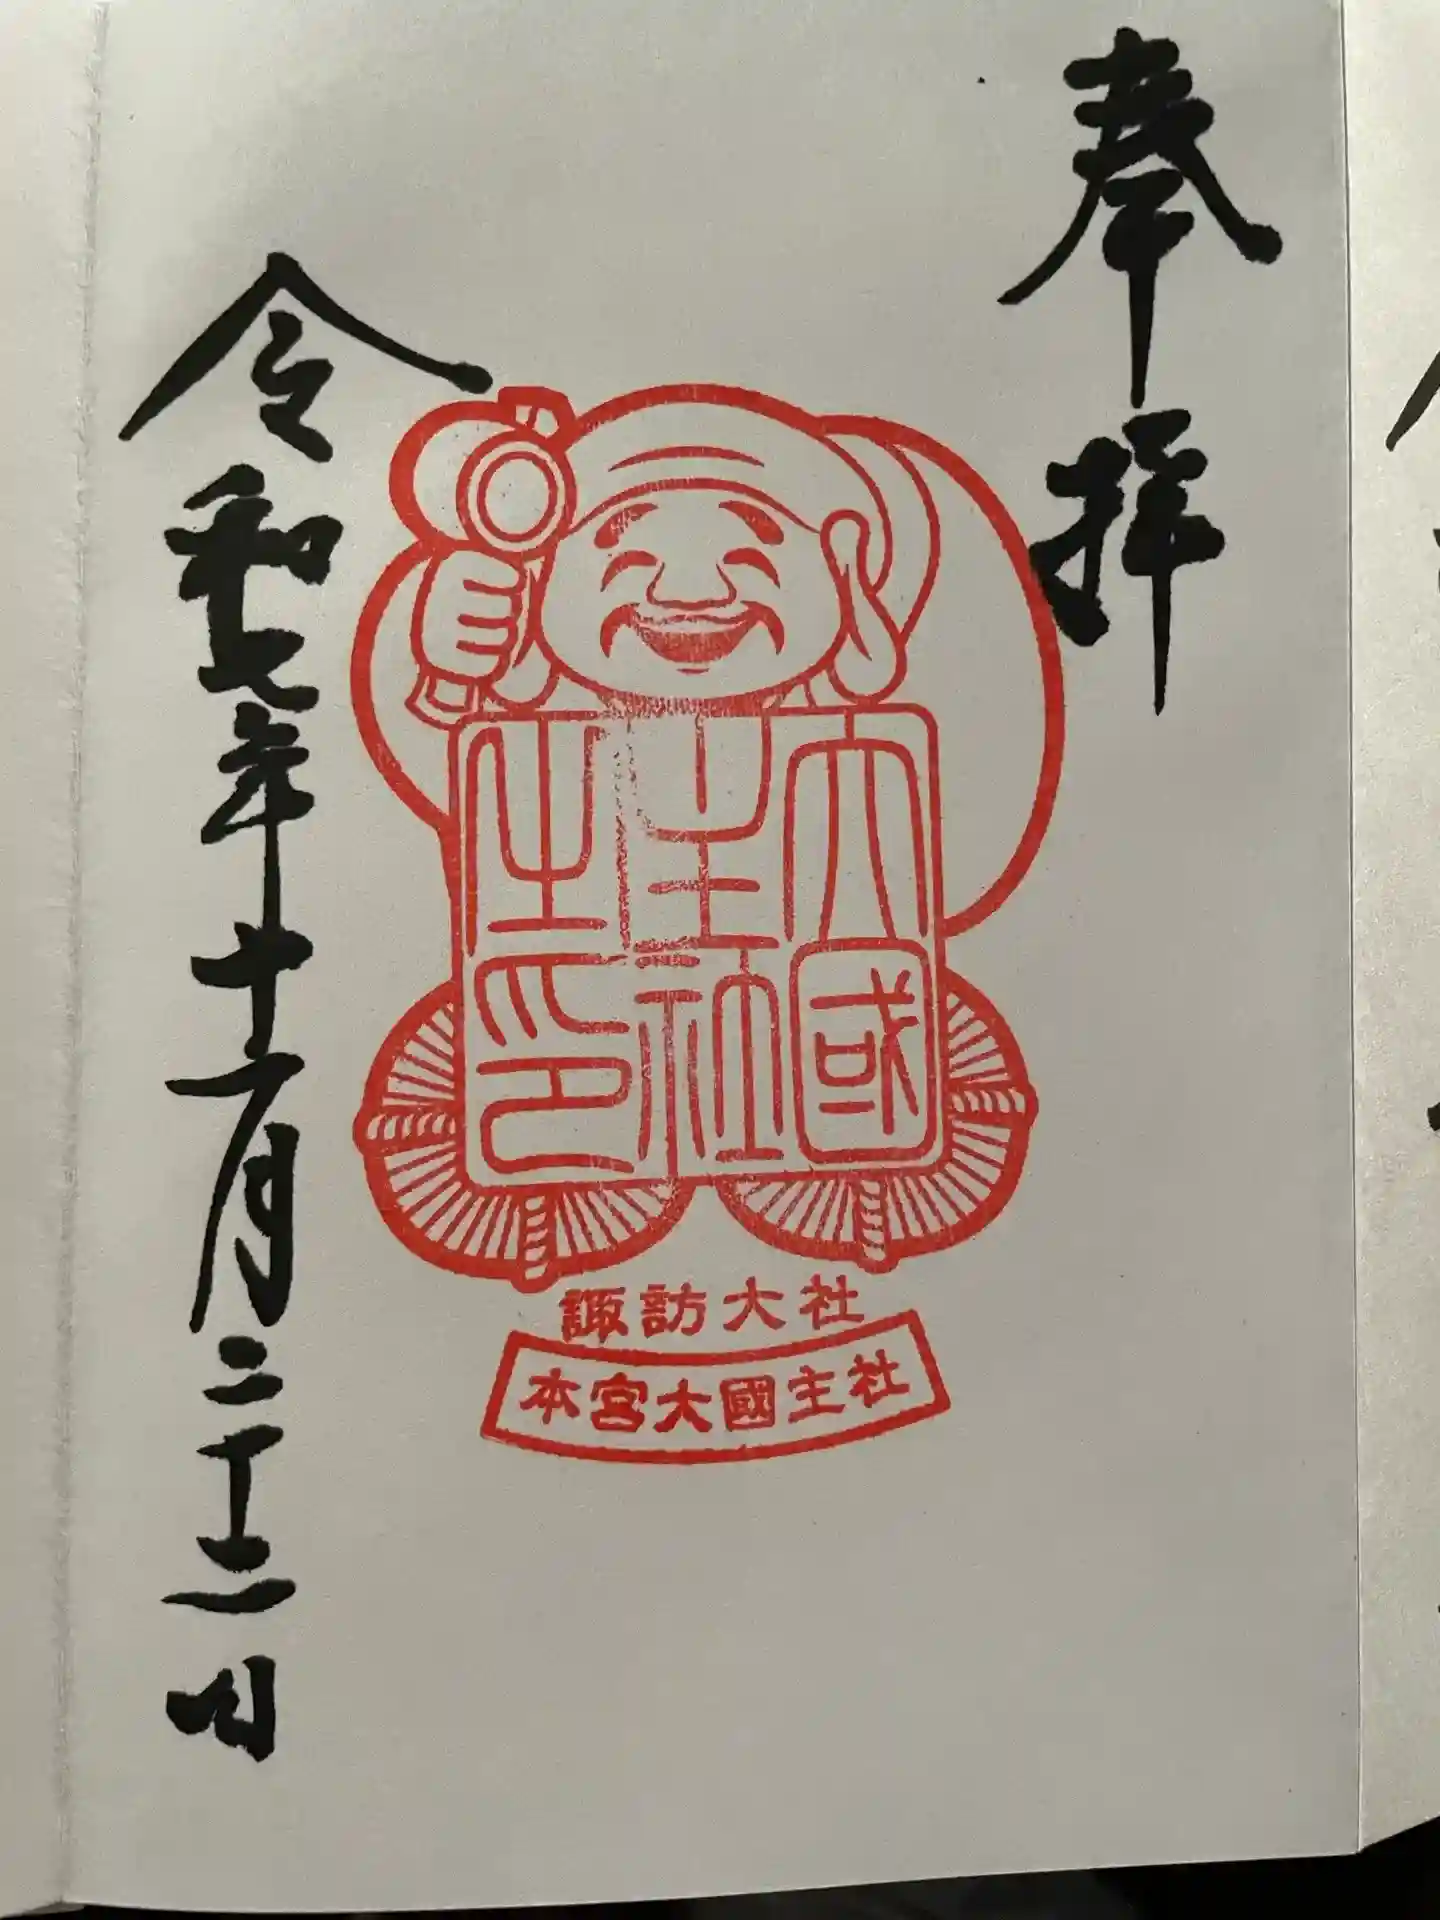 奉拝
大國
主社
之印
諏訪大社
本宮大國主社
令和七年十一月二十三日